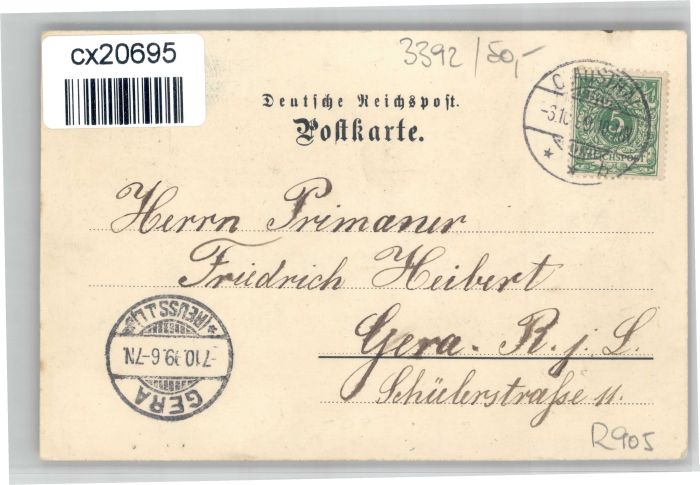 cx20695
3392/50,-
Deutsche Reichspost.
Postkarte.
5
REICHSPOST
Herrn Primaner
Friedrich Heibert
Gera. R. j. L.
Schülerstraße 11.
(REUSS J.L.)
7.10.99.6-7N.
GERA
R905